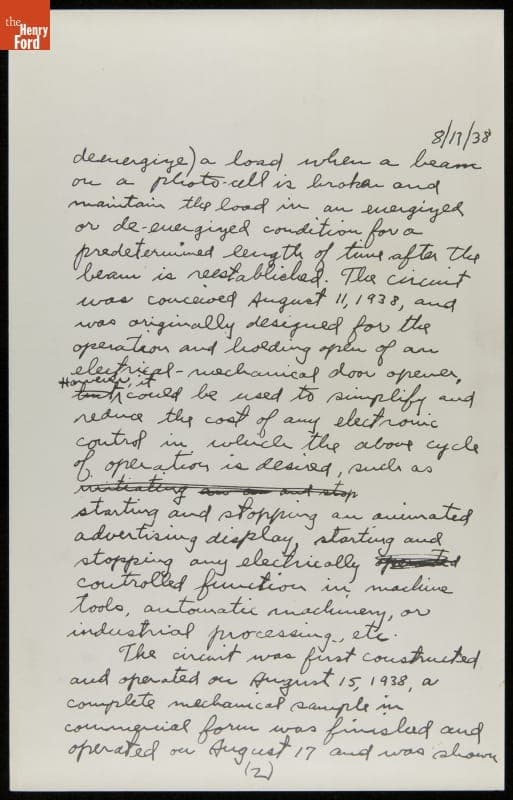 the
Henry
Ford
8/17/38
deenergize) a load when a beam
on a photo-cell is broken and
maintain the load in an energized
or de-energized condition for a
predetermined length of time after the
beam is reestablished. The circuit
was conceived August 11, 1938, and
was originally designed for the
operation and holding open of an
electrical-mechanical door opener,
However, it
but, could be used to simplify and
reduce the cost of any electronic
control in which the above cycle
of operation is desired, such as
initiating an an and stop
starting and stopping an animated
advertising display, starting and
stopping any electrically operated
controlled function in machine
tools, automatic machinery, or
industrial processing, etc.
The circuit was first constructed
and operated on August 15, 1938, a
complete mechanical sample in
commercial form was finished and
operated on August 17 and was shown
(2)